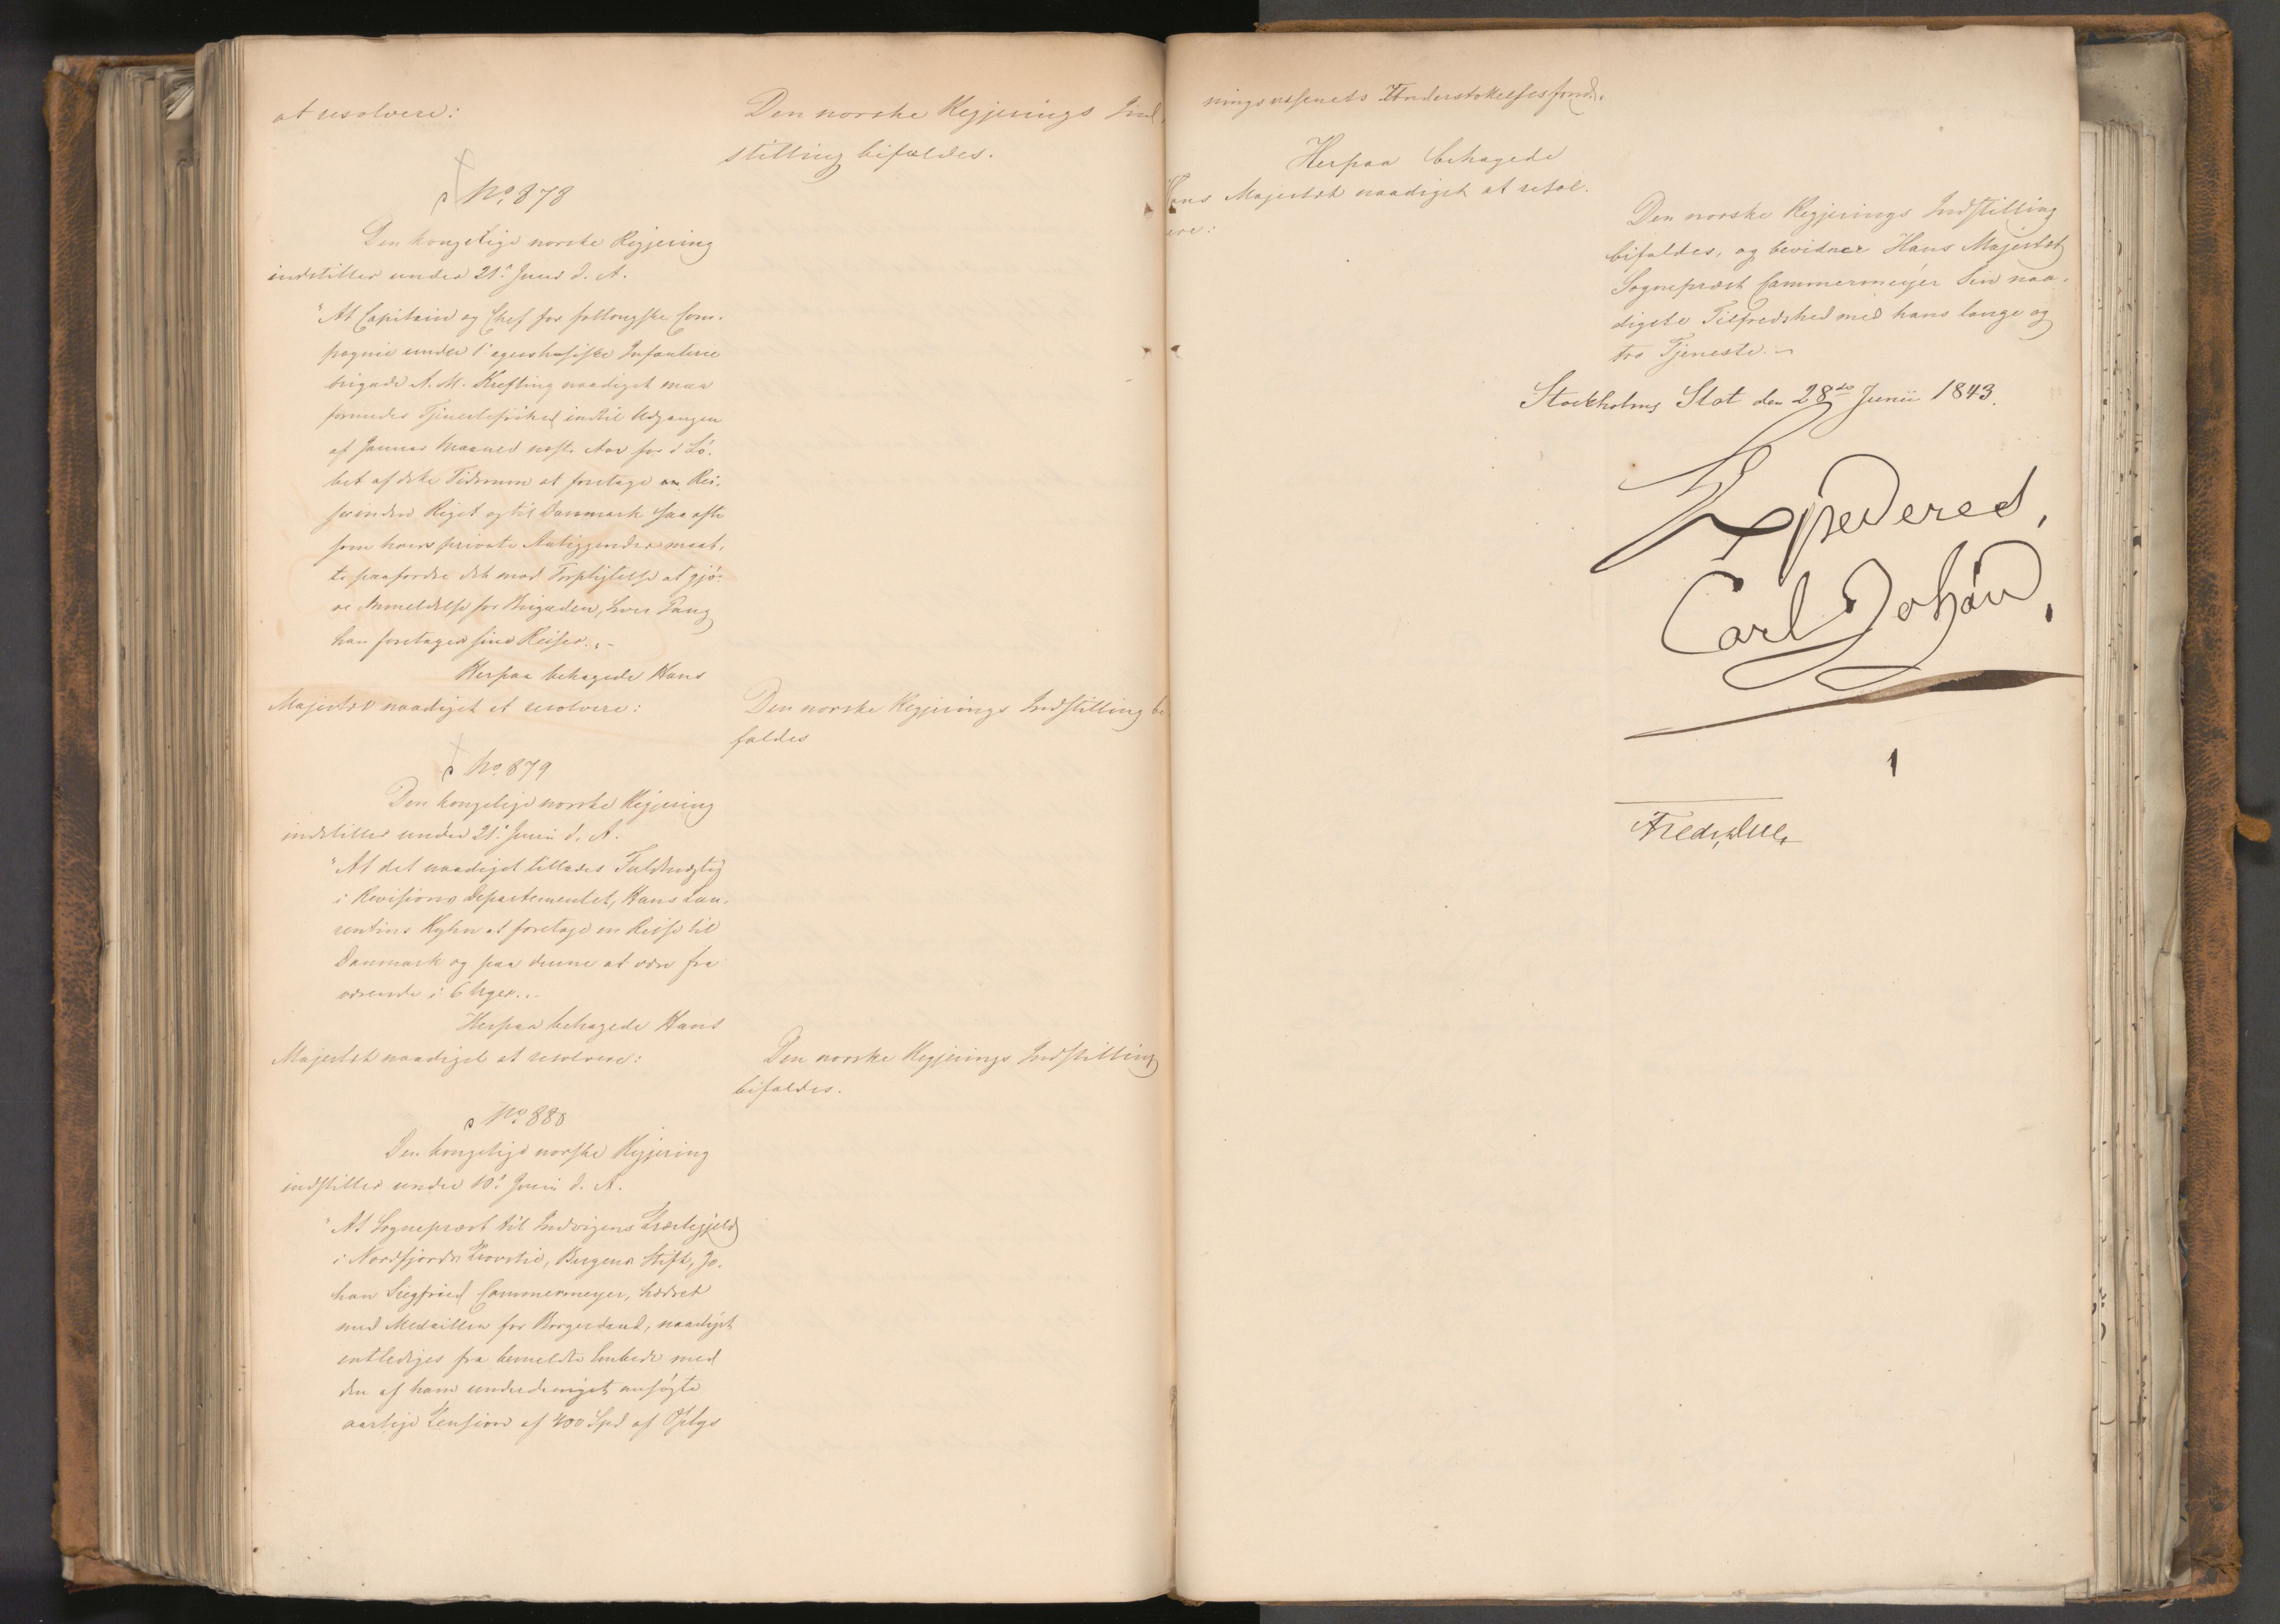 at resolvere:
Den norske Regjerings Ind
stilling bifaldes.
No. 878
Den kongelige norske Regjering
indstiller under 21. Juni d. A.
"At Capitain og Chef for follougske Com-
pagnie under 1. agershusiske Infanterie
brigade A. M. Krefting naadigst maa
forundes Tjenestefrihed indtil Udgangen
af Januar Maaned næste Aar for i Lö-
bet af dette Tidsrum at foretage en Rei-
se inden Riget og til Danmark saa ofte
som hans private Anliggender maat-
te paafordre det mod Forpligtelse at gjö-
re Anmeldelse for Brigaden, hver Gang
han foretager sine Reiser."
Herpaa behagede Hans
Majestæt naadigst at resolvere:
Den norske Regjerings Indstilling bi
faldes
No. 879
Den kongelige norske Regjering
indstiller under 21. Juni d. A.
"At det naadigst tillades Fuldmægtig
i Revisions Departementet, Hans Lau-
rentius Kyhn at foretage en Reise til
Danmark og paa denne at være fra
værende i 6 Uger."
Herpaa behagede Hans
Majestæt naadigst at resolvere:
Den norske Regjerings Indstilling
bifaldes.
No. 880
Den kongelige norske Regjering
indstiller under 10. Juni d. A.
"At Sognepræst til Indvigens Præstegjeld
i Nordfjords Provstie, Bergens Stift, Jo-
han Siegfried Cammermeyer, hædret
med Medaillen for Borgerdaad, naadigst
entlediges fra bemeldte Embede med
den af ham underdanigst ansøgte
aarlige Pension af 400 Spd af Oplys
ningsvæsenets Understøttelsesfond."
Herpaa behagede
Hans Majestæt naadigst at resol-
vere:
Den norske Regjerings Indstilling
bifaldes, og bevidner Hans Majestæt
Sognepræst Cammermeyer Sin naa-
digste Tilfredshed med hans lange og
tro Tjeneste.
Stockholms Slot den 28de Junii 1843.
Expederes,
Carl Johan
Fredr. Due